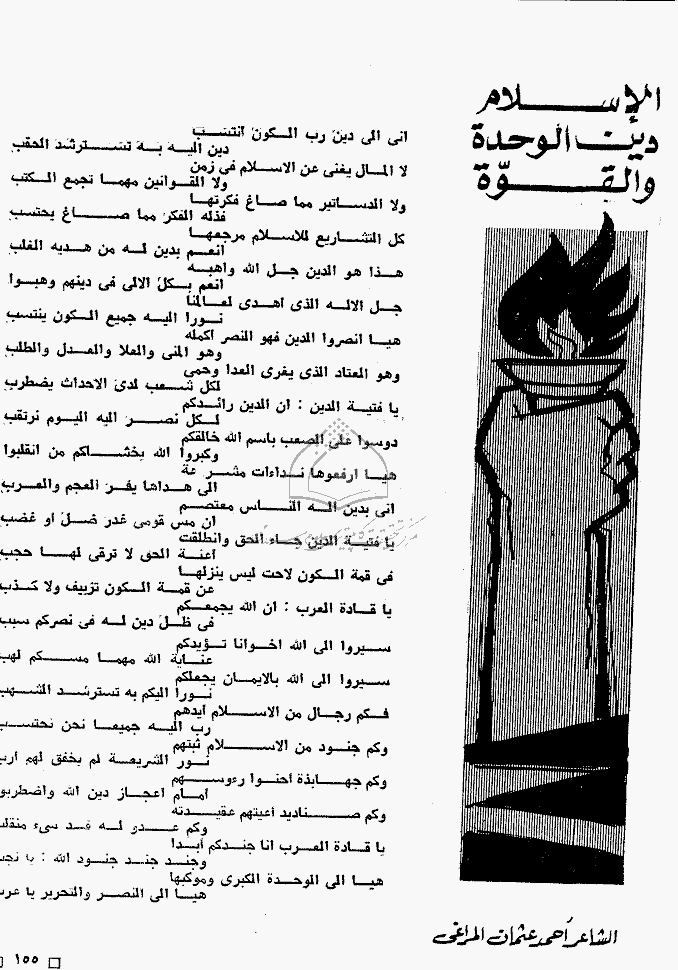 الإسلام
دين الوحدة
والقوّة
انى الى دين رب الكون انتسب
دين اليه به تسترشد الحقب
لا المال يغنى عن الاسلام فى زمن
ولا القوانين مهما تجمع الكتب
ولا الدساتير مما صاغ فكرتها
فذله الفكر مما صاغ يحتسب
كل التشاريع للاسلام مرجعها
أنعم بدين له من هديه الغلب
هذا هو الدين جل الله واهبه
انعم بكل الالى فى دينهم وهبوا
جل الاله الذى اهدى لعالمنا
نورا اليه جميع الكون ينتسب
هيا انصروا الدين فهو النصر اكمله
وهو المنى والعلا والعدل والطلب
وهو العتاد الذى يفرى العدا وحمى
لكل شعب لدى الاحداث يضطرب
يا فتية الدين : ان الدين رائدكم
لكل نصر اليه اليوم نرتقب
دوسوا على الصعب باسم الله خالقكم
وكبروا الله يخشاكم من انقلبوا
هيا ارفعوها نداءات مشرعة
الى هداها يفر العجم والعرب
انى بدين اله الناس معتصم
ان مس قومى غدر ضل او غضب
يا فتية الدين جاء الحق وانطلقت
أعنة الحق لا ترقى لها حجب
فى قمة الكون لاحت ليس ينزلها
عن قمة الكون تزييف ولا كذب
يا قادة العرب : ان الله يجمعكم
فى ظل دين له فى نصركم سبب
سيروا الى الله اخوانا تؤيدكم
عناية الله مهما مسكم لهب
سيروا الى الله بالايمان يجعلكم
نورا اليكم به تسترشد الشهب
فكم رجال من الاسلام أيدهم
رب اليه جميعا نحن نحتسب
وكم جنود من الاسلام ثبتهم
نور الشريعة لم يخفق لهم أرب
وكم جهابذة أحنوا رءوسهم
أمام اعجاز دين الله واضطربوا
وكم صناديد أعيتهم عقيدته
وكم عدو له قد سىء منقلب
يا قادة العرب انا جندكم أبدا
وجند جند جنود الله : يا نجب
هيا الى الوحدة الكبرى وموكبها
هيا الى النصر والتحرير يا عرب
الشاعر أحمد عثمان المراغى
١٥٥